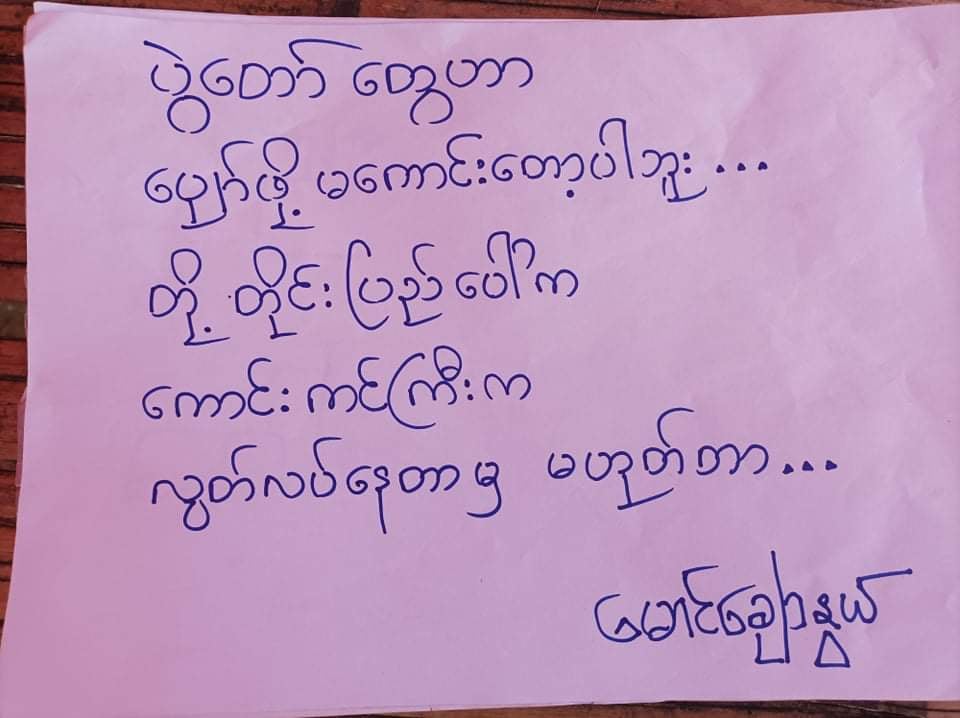 ပွဲတော် တွေဟာ
ပျော်ဖို့ မကောင်းတော့ပါဘူး ...
တို့ တိုင်းပြည်ပေါ်က
ကောင်းကင်ကြီးက
လွတ်လပ်နေတာမှ မဟုတ်တာ ...
မောင်ချောနွယ်